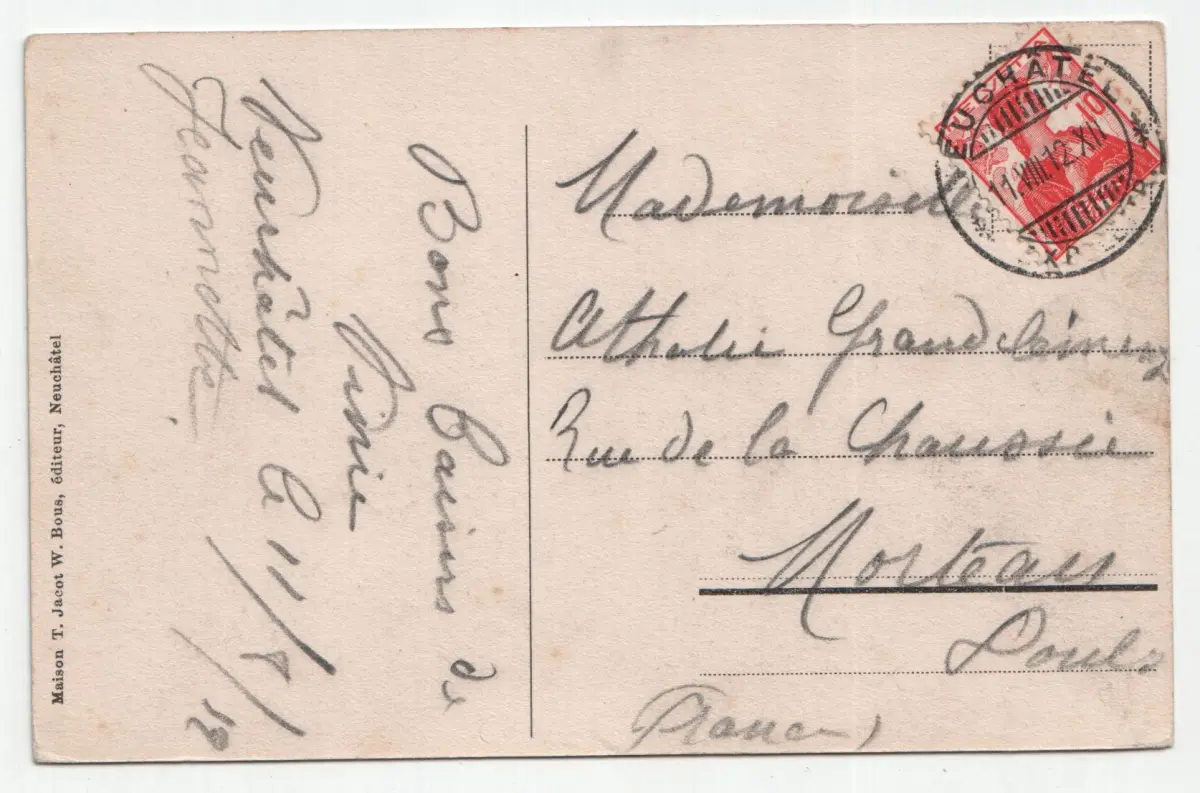 Bons baisers de
Ninie
Neuchâtel le 11/8/12
Jeannette
Maison T. Jacot W. Bous, éditeur, Neuchâtel
HELVETIA
10
NEUCHÂTEL
11.VIII.12.XII
EXP. LETTR.
Mademoiselle
Athalie Grandclément
Rue de la Chaussée
Morteau
Doubs
(France)